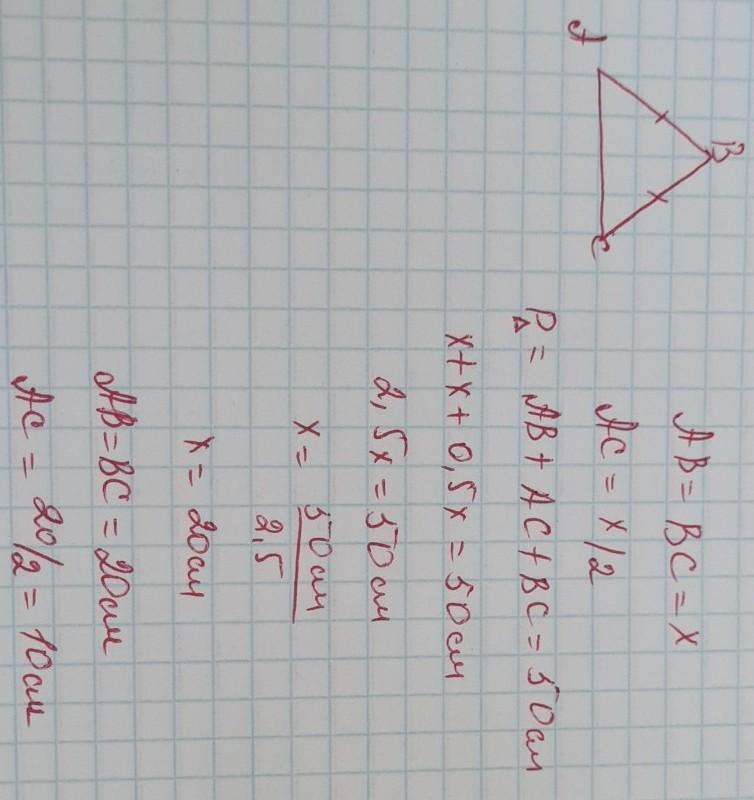 B
A
C
AB = BC = x
AC = x/2
P△ = AB + AC + BC = 50см
x + x + 0,5x = 50см
2,5x = 50см
x = 50см
2,5
x = 20см
AB = BC = 20см
AC = 20/2 = 10см